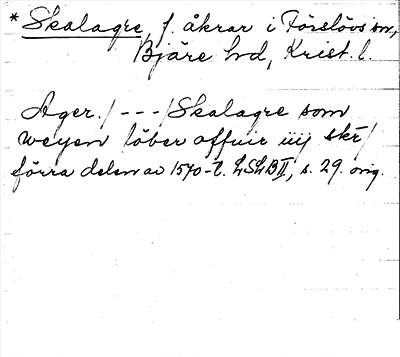 * Skalagre, f. åkrar i Förslövs sn,
Bjäre hd, Krist. l.
Ager. / - - - / Skalagre som
weyen løber offuir iiij skr /
förra delen av 1570-t. LSLB II, s. 29. orig.